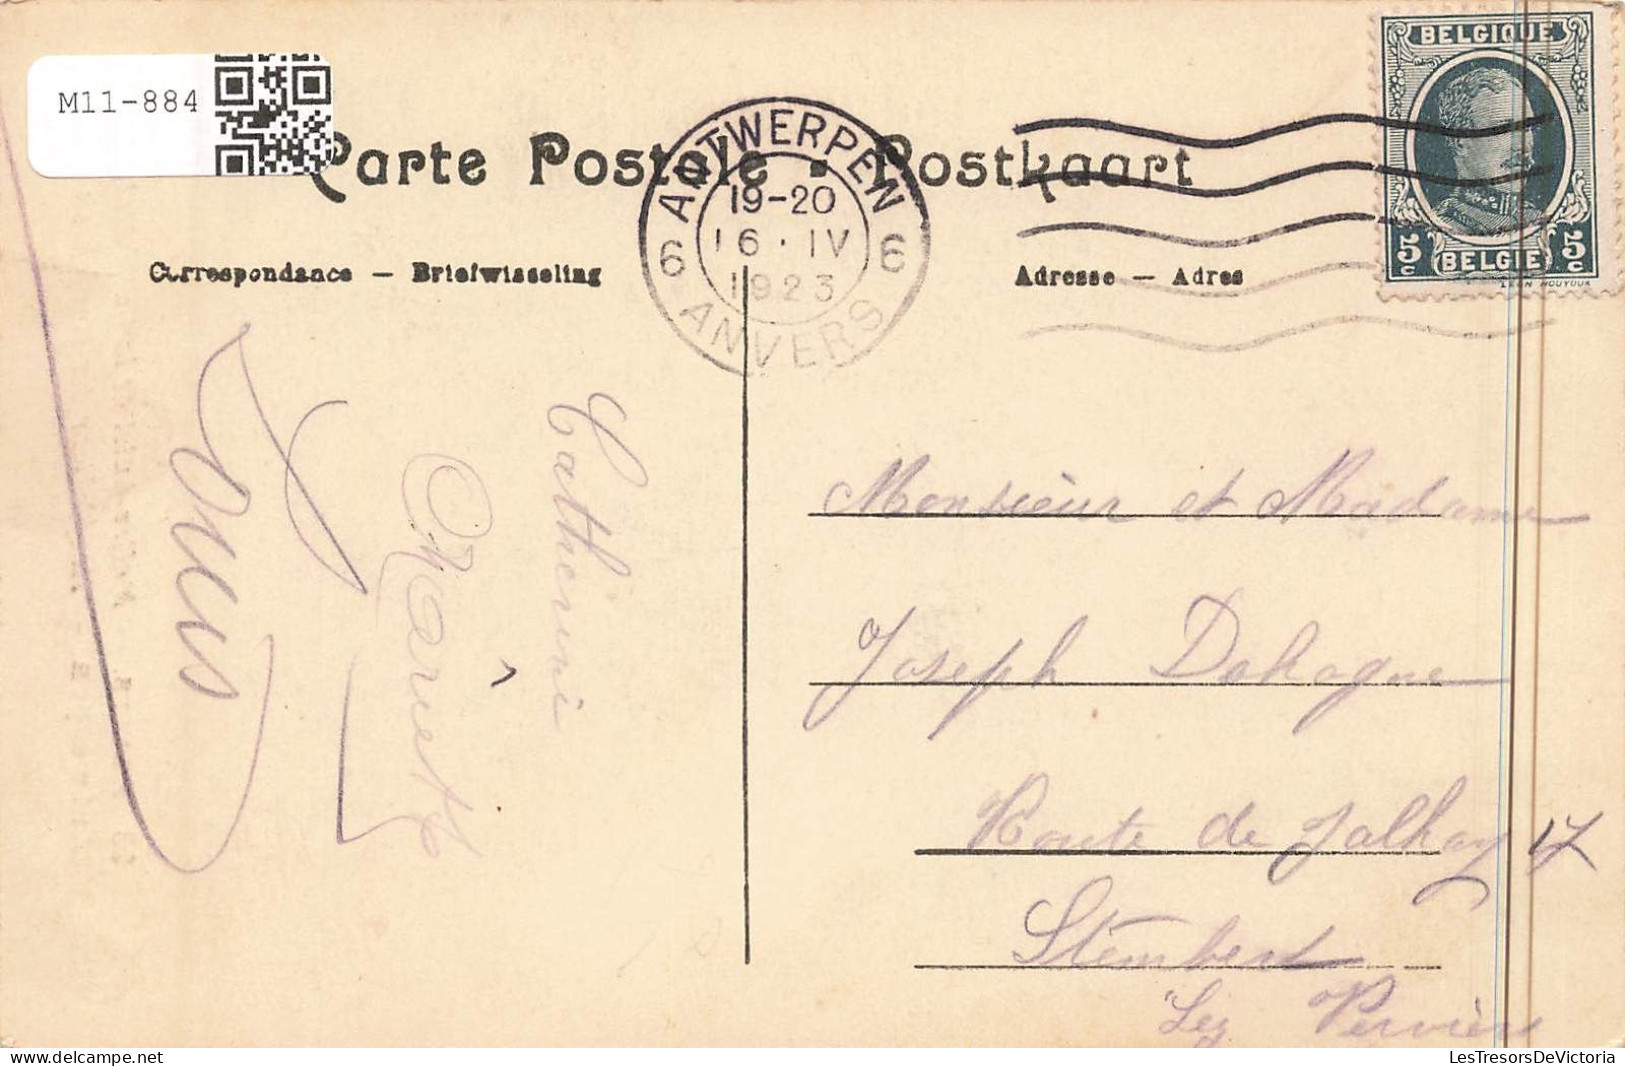 M11-884
Carte Postale - Postkaart
Correspondance — Briefwisseling
Adresse — Adres
ANTWERPEN
19-20
16 · IV
1923
6 6
ANVERS
BELGIQUE
5c 5c
BELGIË
LEON HOUYOUX
Louis
Mariette
Catherine
Monsieur et Madame
Joseph Dehogne
Route de Jalhay 17
Stembert
Lez Verviers
LesTresorsDeVictoria